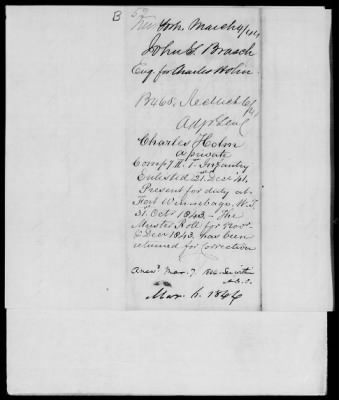 B 52
York, March 4/44
John G. Brasch
Enq for Charles Holm
B468. 
Adjt Genl
Charles Holm
a private
Comp. Infantry
Enlisted 21 Dec '41,
Present for duty at
Fort Winnebago, W.T.
31, Octr 1843 - The
Muster Roll for Novr
& Decr 1843, has been
returned for Correction
Ansd Mar. 7
Mar. 6. 1844